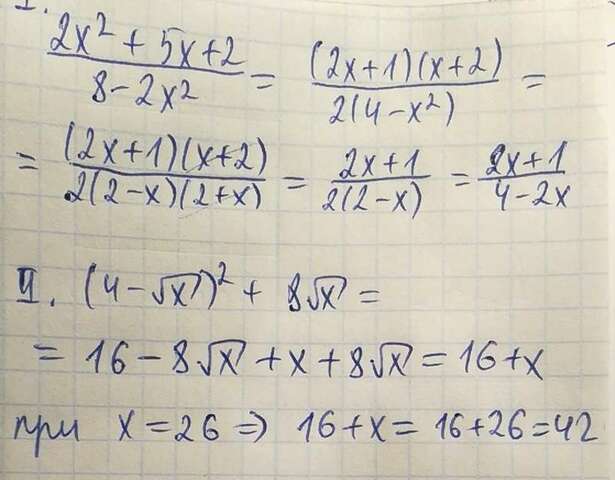 I.
(2x² + 5x + 2)/(8 - 2x²) = ((2x+1)(x+2))/(2(4-x²)) =
= ((2x+1)(x+2))/(2(2-x)(2+x)) = (2x+1)/(2(2-x)) = (2x+1)/(4-2x)
II. (4-√x)² + 8√x =
= 16 - 8√x + x + 8√x = 16 + x
при x = 26 ⇒ 16 + x = 16 + 26 = 42